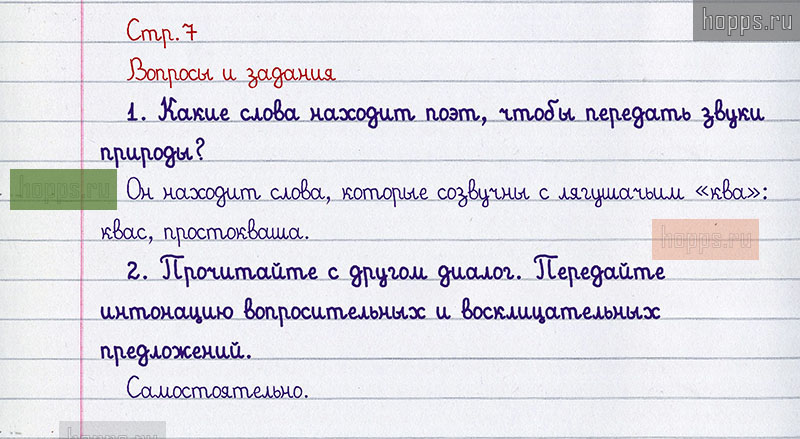 hopps.ru
Стр. 7
Вопросы и задания
1. Какие слова находит поэт, чтобы передать звуки
природы?
hopps.ru
Он находит слова, которые созвучны с лягушачьим «ква»:
квас, простокваша.
hopps.ru
2. Прочитайте с другом диалог. Передайте
интонацию вопросительных и восклицательных
предложений.
Самостоятельно.
hopps.ru